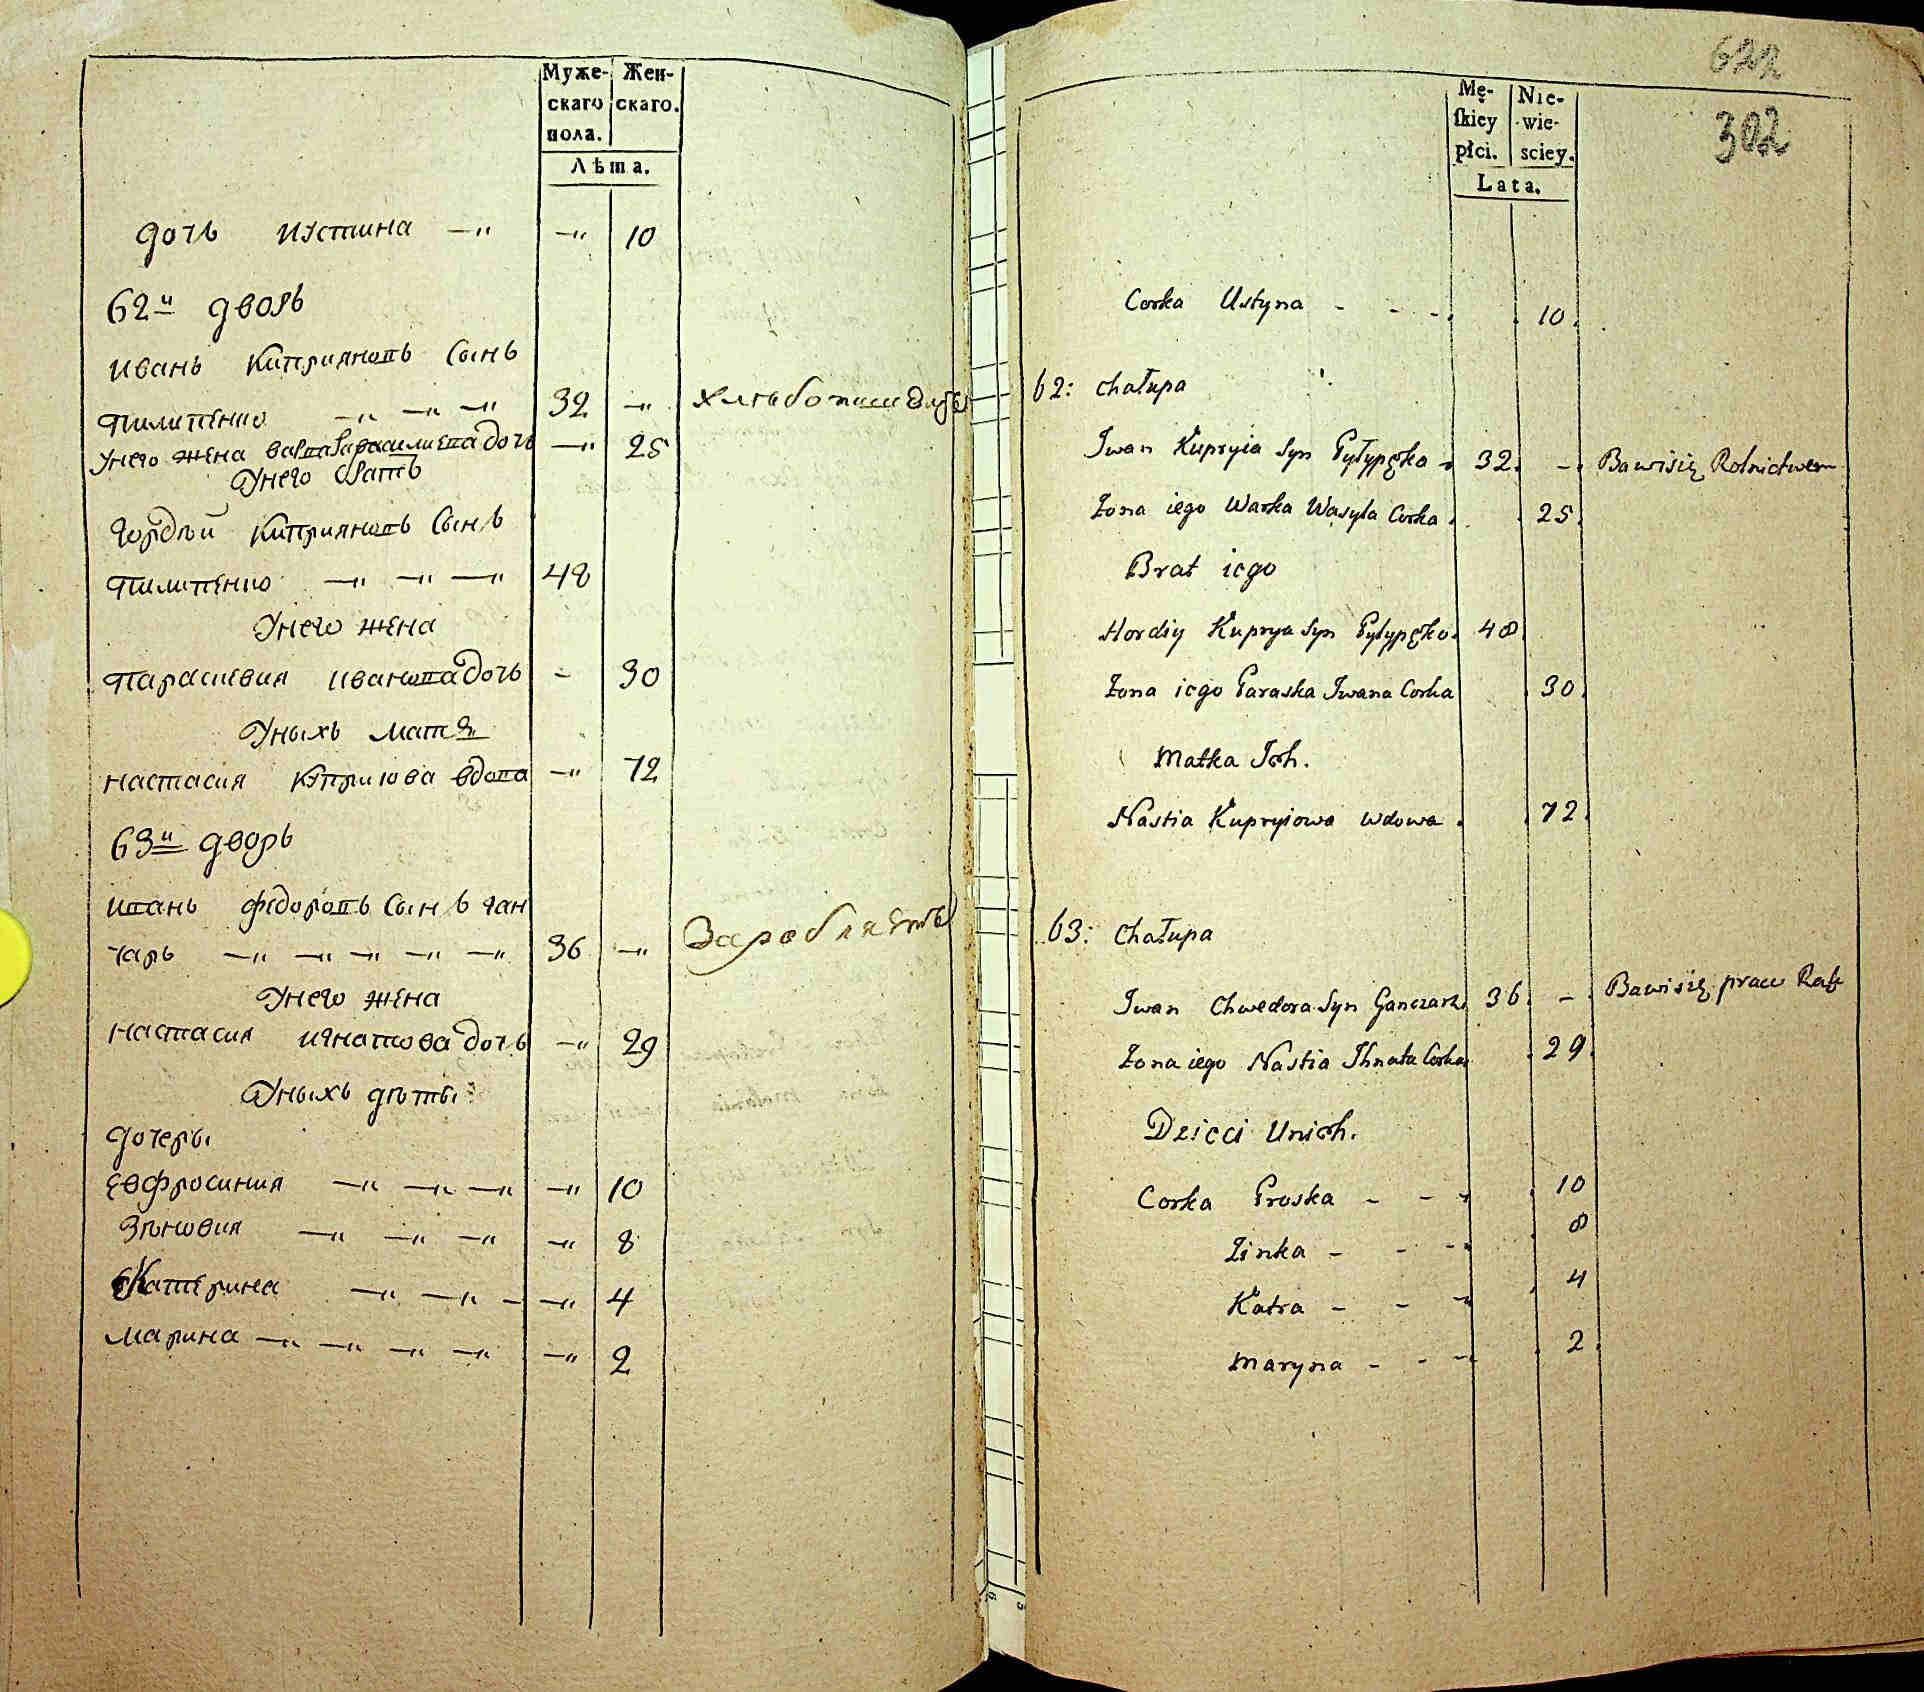 Муже-
скаго
пола.
Жен-
скаго.
Лѣта.
дочь Иустина —„ —„ 10
62й дворъ
Иванъ Киприяновъ Сынъ
Пилипенко —„ —„ —„ 32 —„
Унего жена варвара василиева дочь —„ 25
Унего братъ
Гордѣй Киприяновъ Сынъ
Пилипенко —„ —„ —„ 48
Унего жена
Параскевия иванова дочь - 30
Уныхъ мать
Настасия Куприова вдова —„ 72
63й дворъ
Иванъ федоровъ Сынъ ган
чарь —„ —„ —„ —„ —„ 36 —„ Заробляетъ
Унего жена
Настасия игнатова дочь —„ 29
Уныхъ дѣты:
дочеры
Евфросиния —„ —„ —„ —„ 10
Зѣновия —„ —„ —„ —„ 8
Екатерина —„ —„ - —„ 4
Марина —„ —„ —„ —„ —„ 2
622
302
Mę-
ſkiey
płci.
Nie-
wie-
sciey.
Lata.
Corka Ustyna - - -. 10.
62: chałupa
Iwan Kupryia Syn Pyłypęko - 32. -. Bawisię Rolnictwem
Żona iego Warka Wasyla Corka. 25.
Brat iego
Hordiy Kuprya Syn Pyłypęko. 48
Żona iego Paraska Iwana Corka 30.
Matka Ich.
Nastia Kupryiowa wdowa. 72.
63: Chałupa
Iwan Chwedora Syn Ganczarz. 36. -. Bawisię pracu Rąk
Żona iego Nastia Ihnata Corka 29.
Dzieci Unich.
Corka Proska - - - 10
Zinka - - - 8
Katra - - - 4
Maryna - - - 2.